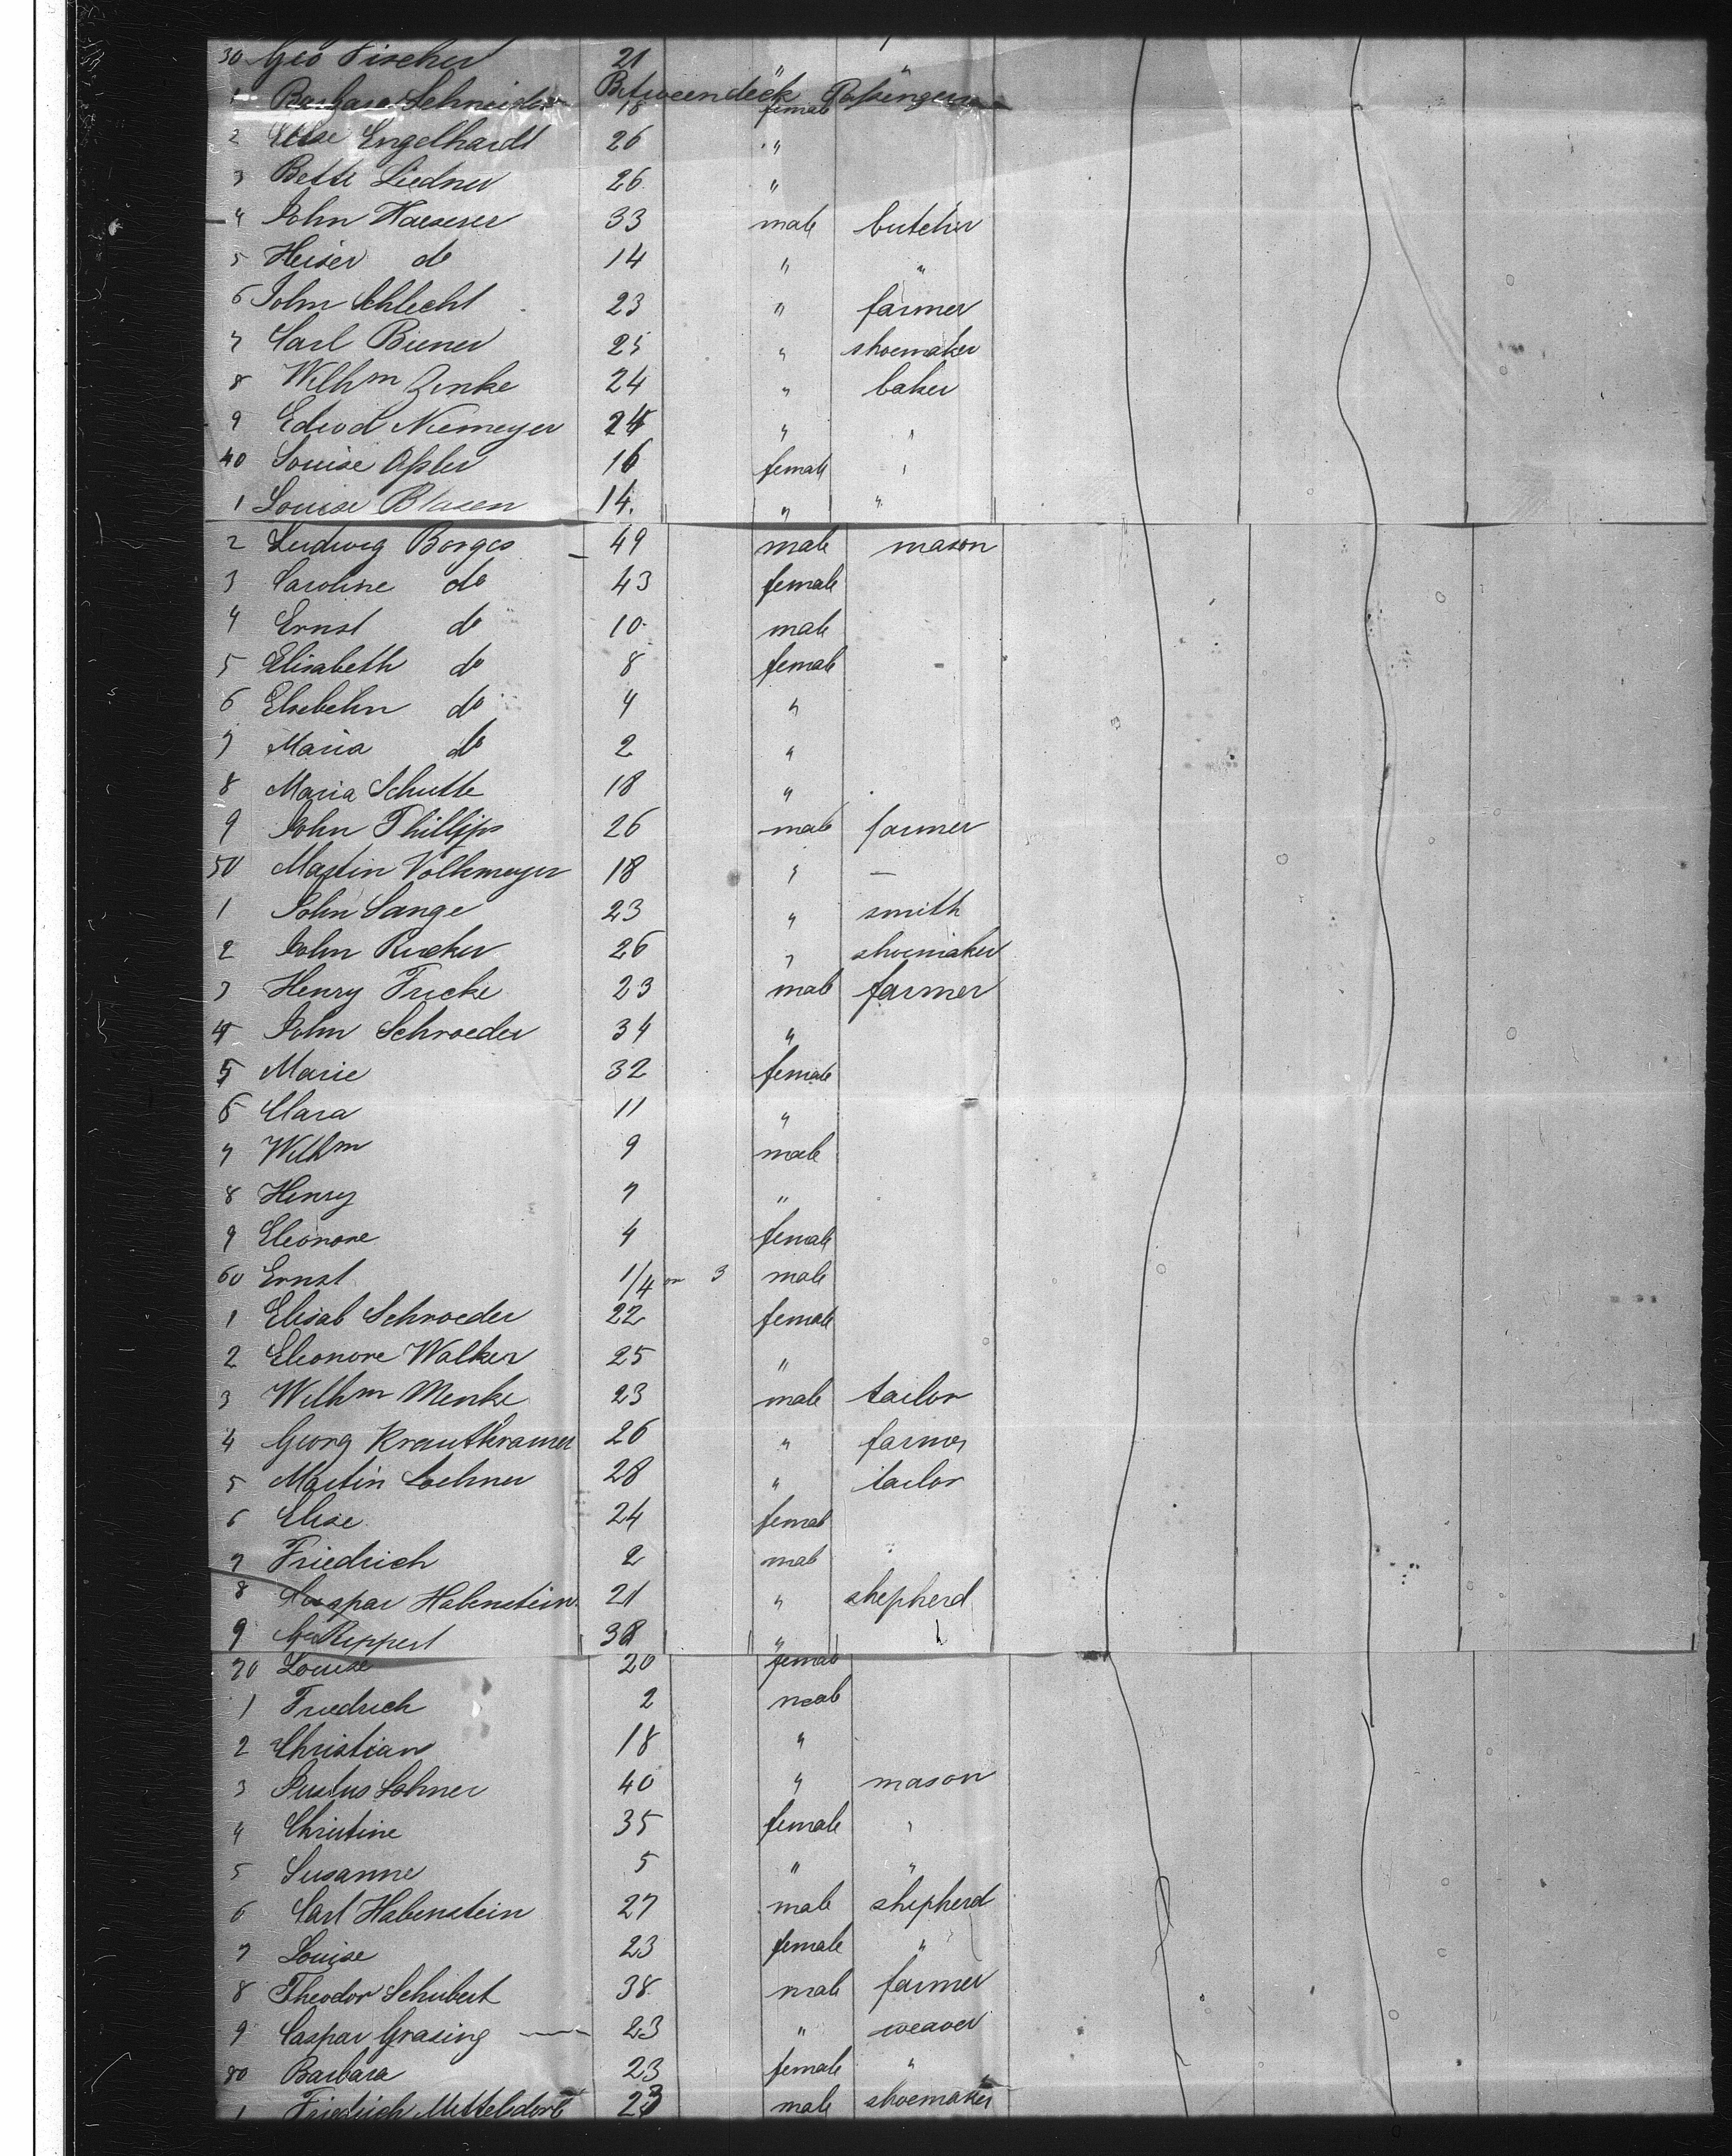 30 Geo Fischer 21 " "
Betweendeck Passengers
1 Barbara Schneider 18 female
2 Elise Engelhardt 26 "
3 Bette Liedner 26 "
4 John Haeserer 33 male butcher
5 Heiser do 14 " "
6 John Schlecht 23 " farmer
7 Carl Biener 25 " shoemaker
8 Wilhm Zenke 24 " baker
9 Edwd Niemeyer 24 " "
40 Louise Assler 16 female "
1 Louise Blasen 14. " "
2 Ludwig Borges 49 male mason
3 Caroline do 43 female
4 Ernst do 10 male
5 Elisabeth do 8 female
6 Elsebehn do 4 "
7 Maria do 2 "
8 Maria Schutte 18 "
9 John Phillips 26 male farmer
50 Martin Volkmeyer 18 " —
1 John Lange 23 " smith
2 John Rucker 26 " shoemaker
3 Henry Fricke 23 male farmer
4 John Schroeder 34 "
5 Marie 32 female
6 Clara 11 "
7 Wilhm 9 male
8 Henry 7 "
9 Eleonore 4 female
60 Ernst 1/4 or 3 male
1 Elisab Schroeder 22 female
2 Eleonore Walker 25 "
3 Wilhm Menke 23 male tailor
4 Georg Krautkramer 26 " farmer
5 Martin Lochner 28 " tailor
6 Elise 24 female
7 Friedrich 2 male
8 Caspar Habenstein 21 " shepherd
9 Rippert 38 "
70 Louise 20 female
1 Friedrich 2 male
2 Christian 18 "
3 Justus Lohner 40 " mason
4 Christine 35 female "
5 Susanne 5 " "
6 Carl Habenstein 27 male shepherd
7 Louise 23 female "
8 Theodor Schubert 38 male farmer
9 Caspar Grasing 23 " weaver
80 Barbara 23 female "
1 Friedrich Mitteldorf 23 male shoemaker